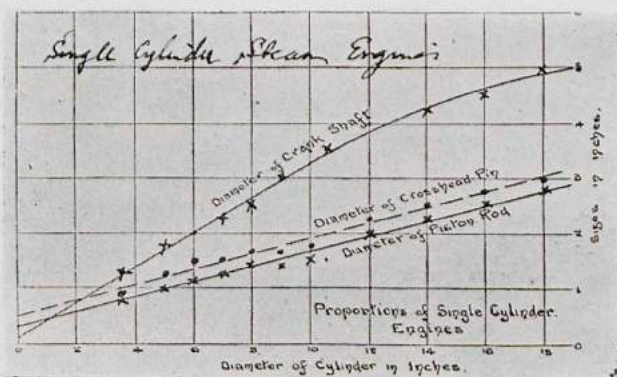 Single Cylinder Steam Engines
Diameter of Crank Shaft
Diameter of Crosshead Pin
Diameter of Piston Rod
Proportions of Single Cylinder
Engines
5
4
3
2
1
0
Sizes in inches.
0 2 4 6 8 10 12 14 16 18
Diameter of Cylinder in Inches.